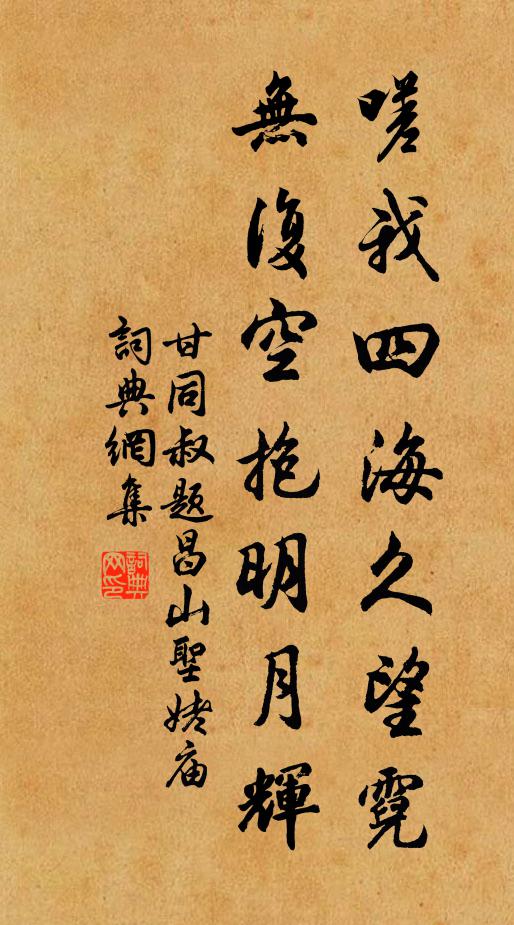 嗟我四海久望霓
無復空抱明月輝
甘同叔题昌山聖姥庙
詞典網集
詞典網印